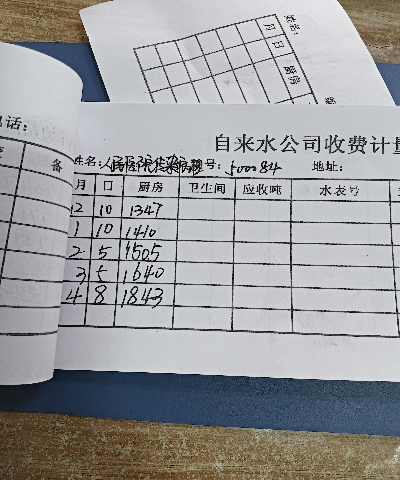 姓名:
月 日 厨房
电话:
备
自来水公司收费计量
姓名: 人民医院传染病 号: 500084 地址:
月 日 厨房 卫生间 应收吨 水表号
12 10 1347
1 10 1410
2 5 1505
3 5 1640
4 8 1843